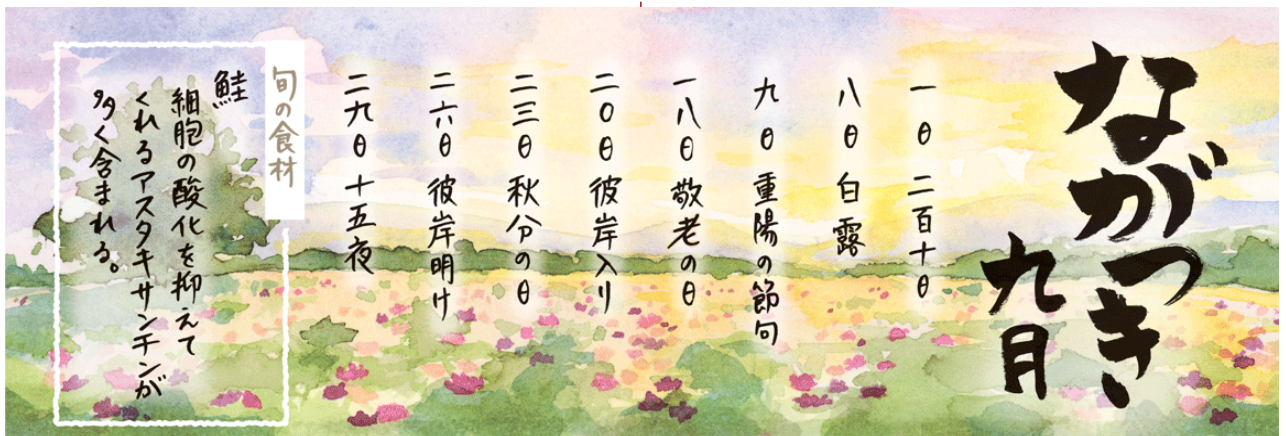 ながつき
九月
一日 二百十日
八日 白露
九日 重陽の節句
一八日 敬老の日
二〇日 彼岸入り
二三日 秋分の日
二六日 彼岸明け
二九日 十五夜
旬の食材
鮭
細胞の酸化を抑えて
くれるアスタキサンチンが
多く含まれる。